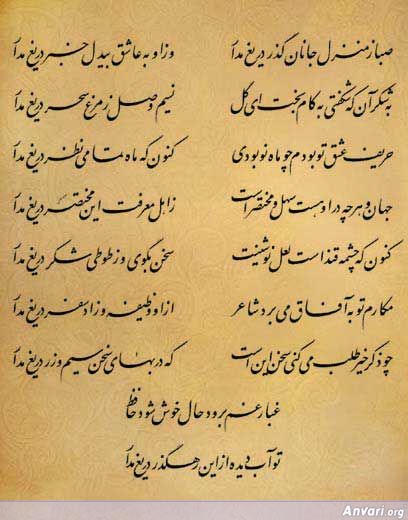 صبا ز منزل جانان گذر دریغ مدار وز او به عاشق بیدل خبر دریغ مدار
به شکر آن که شکفتی به کام بخت ای گل نسیم وصل ز مرغ سحر دریغ مدار
حریف عشق تو بودم چو ماه نو بودی کنون که ماه تمامی نظر دریغ مدار
جهان و هر چه در او هست سهل و مختصر است ز اهل معرفت این مختصر دریغ مدار
کنون که چشمه قند است لعل نوشینت سخن بگوی و ز طوطی شکر دریغ مدار
مکارم تو به آفاق می برد شاعر از او وظیفه و زاد سفر دریغ مدار
چو ذکر خیر طلب می کنی سخن این است که در بهای سخن سیم و زر دریغ مدار
غبار غم برود حال خوش شود حافظ
تو آب دیده از این رهگذر دریغ مدار
Anvari.org